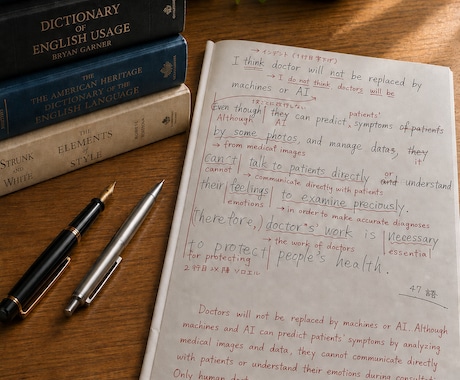 DICTIONARY
OF
ENGLISH USAGE
BRYAN GARNER
THE
THE AMERICAN HERITAGE
DICTIONARY OF THE
ENGLISH LANGUAGE
THE
ELEMENTS
OF
STYLE
STRUNK
AND
WHITE
I think doctor will not be replaced by
→ I do not think doctors will be
machines or AI
Even though they can predict, symptoms of patients
Although AI patients'
by some photos, and manage data, they
→ from medical images it
can't talk to patients directly and understand
cannot → communicate directly with patients or
their feelings to examine preciously.
emotions → in order to make accurate diagnoses
Therefore, doctor's work is necessary
→ the work of doctors essential
to protect people's health.
for protecting
47 語
Doctors will not be replaced by machines or AI. Although
machines and AI can predict patients' symptoms by analyzing
medical images and data, they cannot communicate directly
with patients or understand their emotions during
Only human